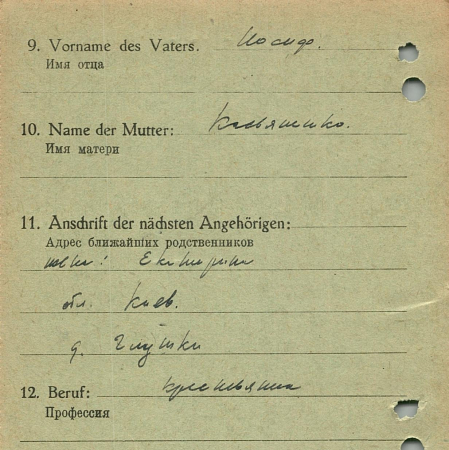 9. Vorname des Vaters. Иосиф.
Имя отца
10. Name der Mutter: Касьяненко.
Имя матери
11. Anschrift der nächsten Angehörigen:
Адрес ближайших родственников
жена: Екатерина
обл. Киев.
д. Глушки
12. Beruf: крестьянин
Профессия